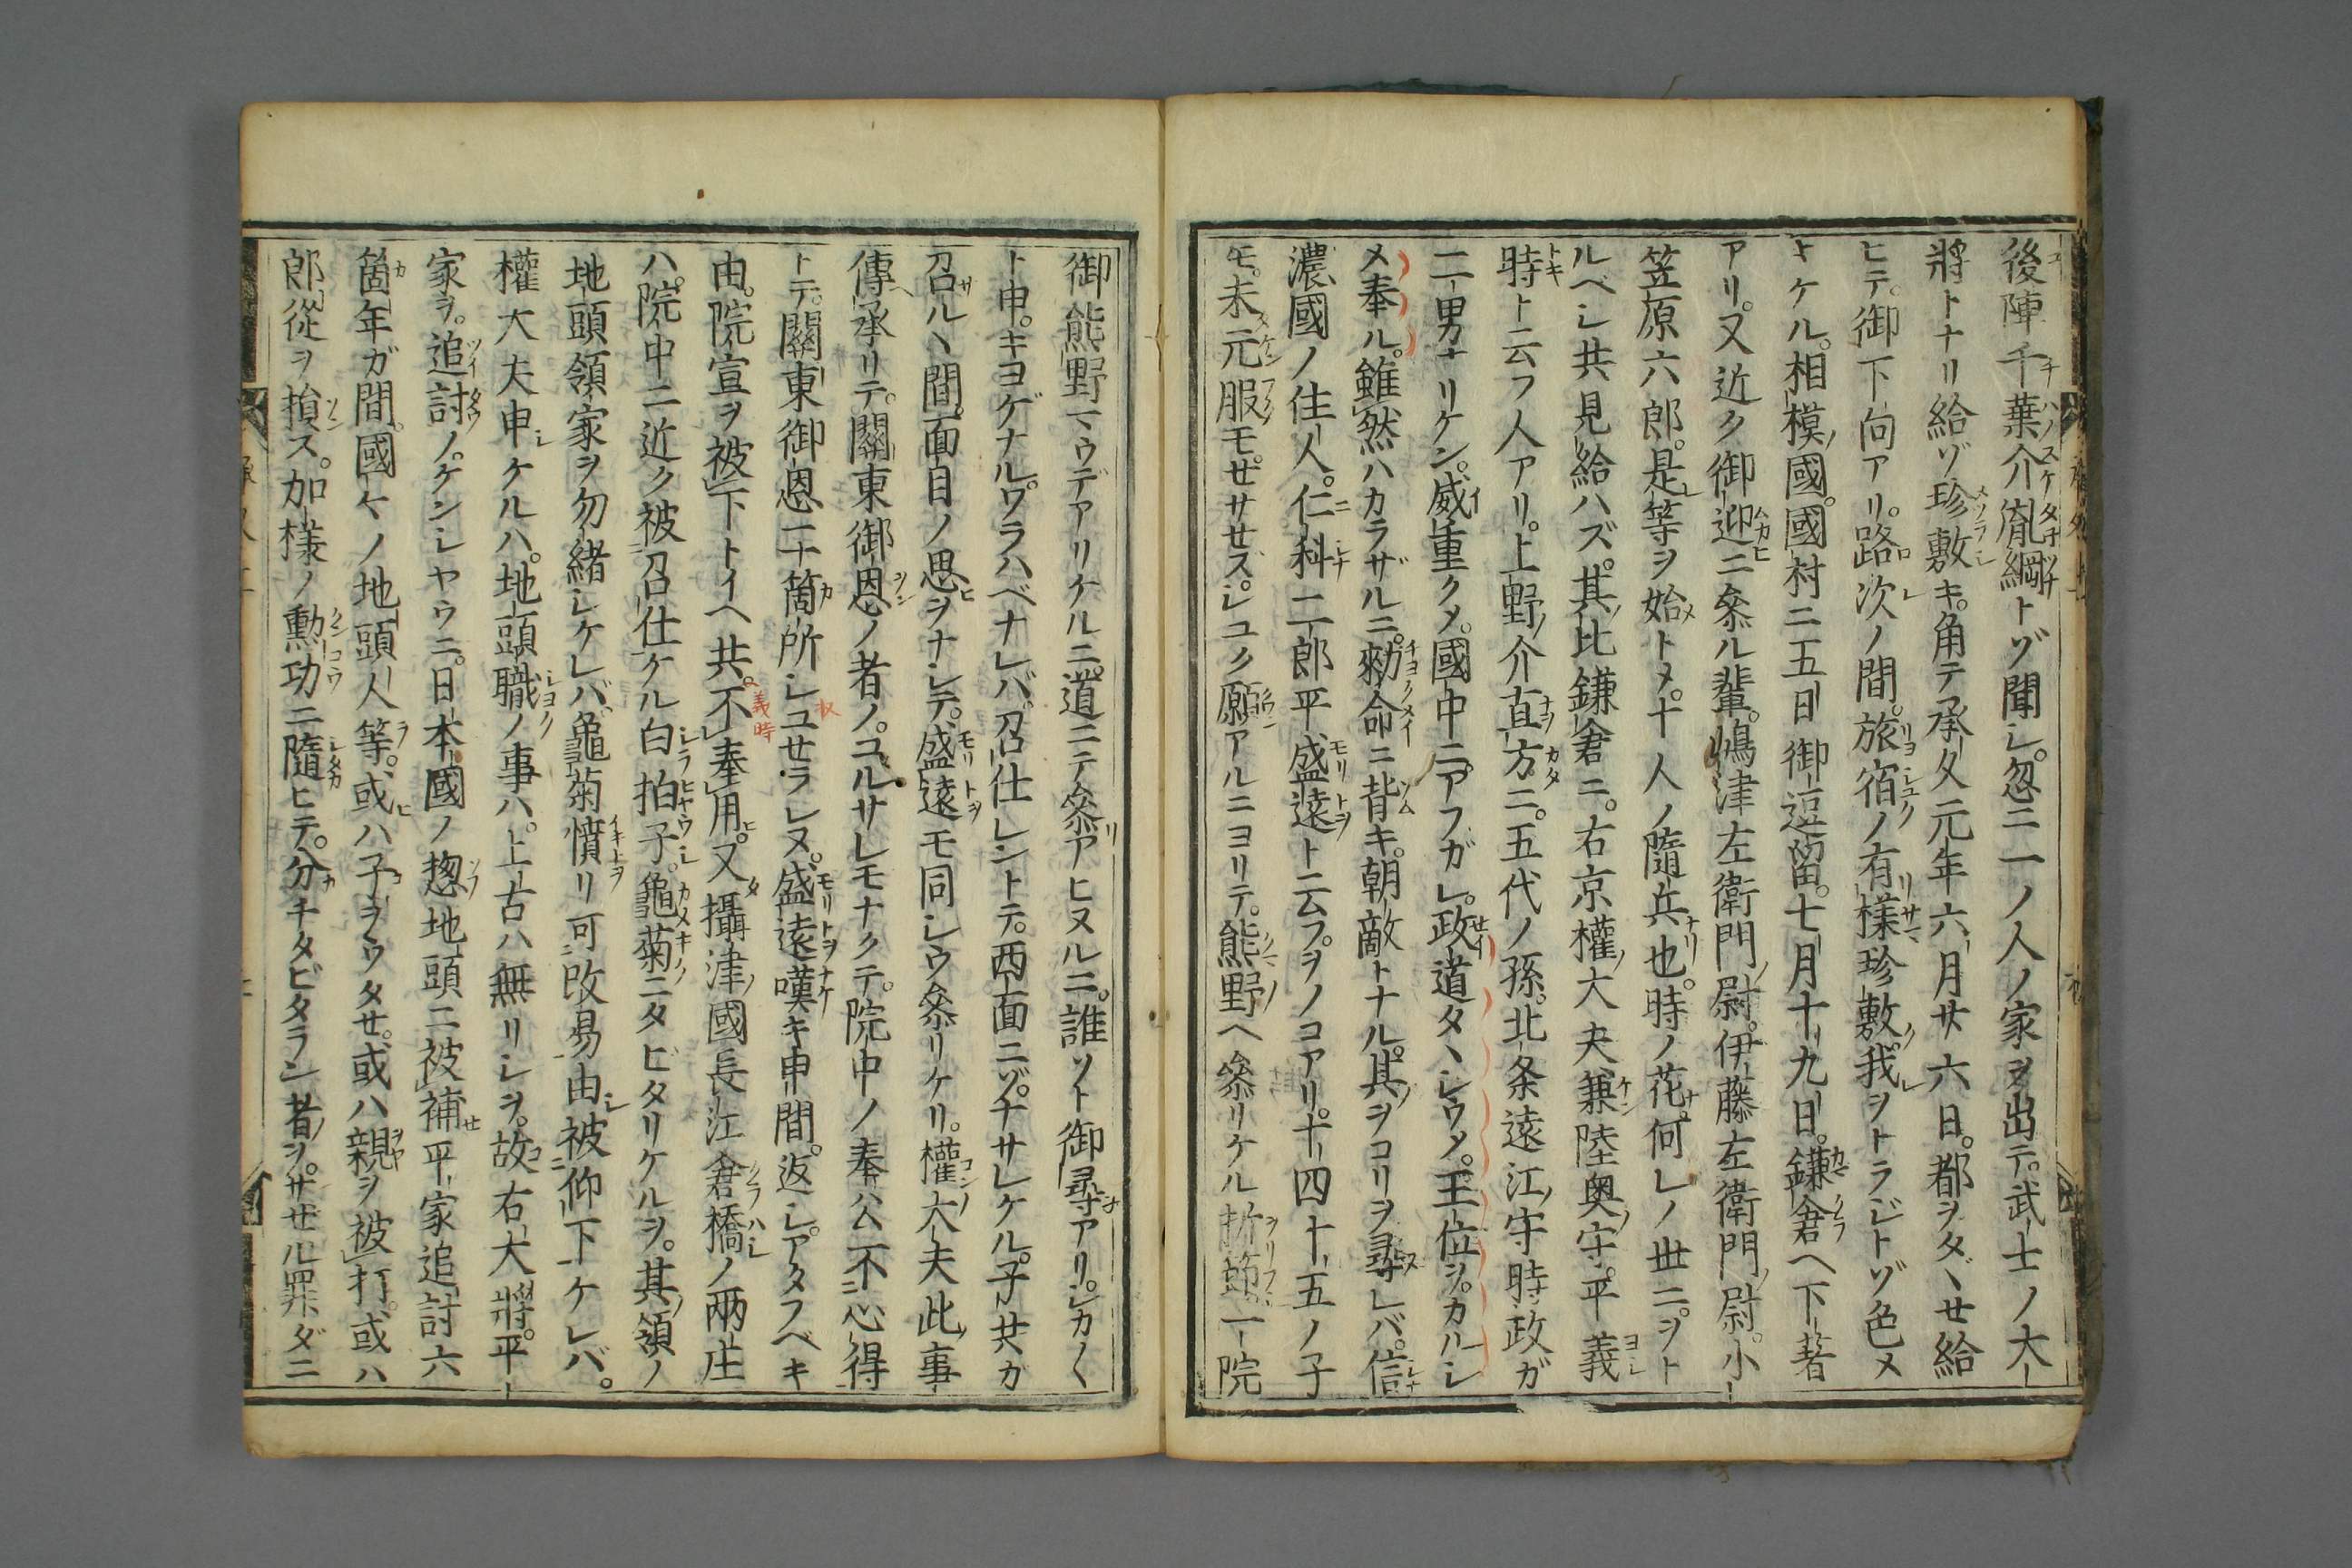 後陣千葉介胤綱トゾ聞シ。忽ニ一ノ人ノ家ヲ出テ。武士ノ大
將トナリ給ゾ珍敷キ。角テ承久元年六月廿六日。都ヲタヽセ給
ヒテ。御下向アリ。路次ノ間。旅宿ノ有樣珍敷。我ヲトラジトゾ色メ
キケル。相模國。國村ニ五日御逗留。七月十九日。鎌倉ヘ下著
アリ。又近ク御迎ニ參ル輩。嶋津左衛門尉。伊藤左衛門尉。小
笠原六郎。是等ヲ始トメ。十人ノ隨兵也。時ノ花。何レノ世ニ。ヲト
ルベシ共見給ハズ。其比鎌倉ニ。右京權大夫兼陸奥守。平義
時ト云フ人アリ。上野介直方ニ。五代ノ孫。北条遠江守時政ガ
二男ナリケン。威重クメ。國中ニアフガレ。政道タヽシウメ。王位ヲ。カルシ
メ奉ル。雖然ハカラザルニ。勅命ニ背キ。朝敵トナル。其ヲコリヲ尋レバ。信
濃國ノ住人。仁科二郎平盛遠ト云フ。ヲノコアリ。十四十五ノ子
モ。未元服モ。セサセズ。シユク願アルニヨリテ。熊野ヘ參リケル折節一院
御熊野マウデアリケルニ。道ニテ參アヒヌルニ。誰ソト御尋アリ。シカ〳〵
ト申。キヨゲナル。ワラハベナレバ。召仕レントテ。西面ニゾ。ナサレケル。子共ガ
召ルヽ間。面目ノ思ヲナシテ。盛遠モ同シウ參リケリ。權大夫此事
傳承リテ。關東御恩ノ者ノ。ユルサレモナクテ。院中ノ奉公不心得
トテ。關東御恩一十箇所シユセラレヌ。盛遠嘆キ申間。返シ。アタフベキ
由。院宣ヲ被下トイヘ共。不奉用。又攝津國長江倉橋ノ兩庄
ハ。院中ニ近ク被召仕ケル白拍子。龜菊ニタビタリケルヲ。其領ノ
地頭領家ヲ勿緒シケレバ。龜菊憤リ可改易由被仰下ケレバ。
權大夫申ケルハ。地頭職ノ事ハ。上古ハ無リシヲ。故右大將。平
家ヲ。追討ノ。ケンシヤウニ。日本國ノ惣地頭ニ被補平家追討六
箇年ガ間。國々ノ地頭人等。或ハ子ヲウタセ。或ハ親ヲ被打。或ハ
郎從ヲ損ス。加樣ノ勳功ニ隨ヒテ。分チタビタラン者ヲ。サセル罪ダニ
義時